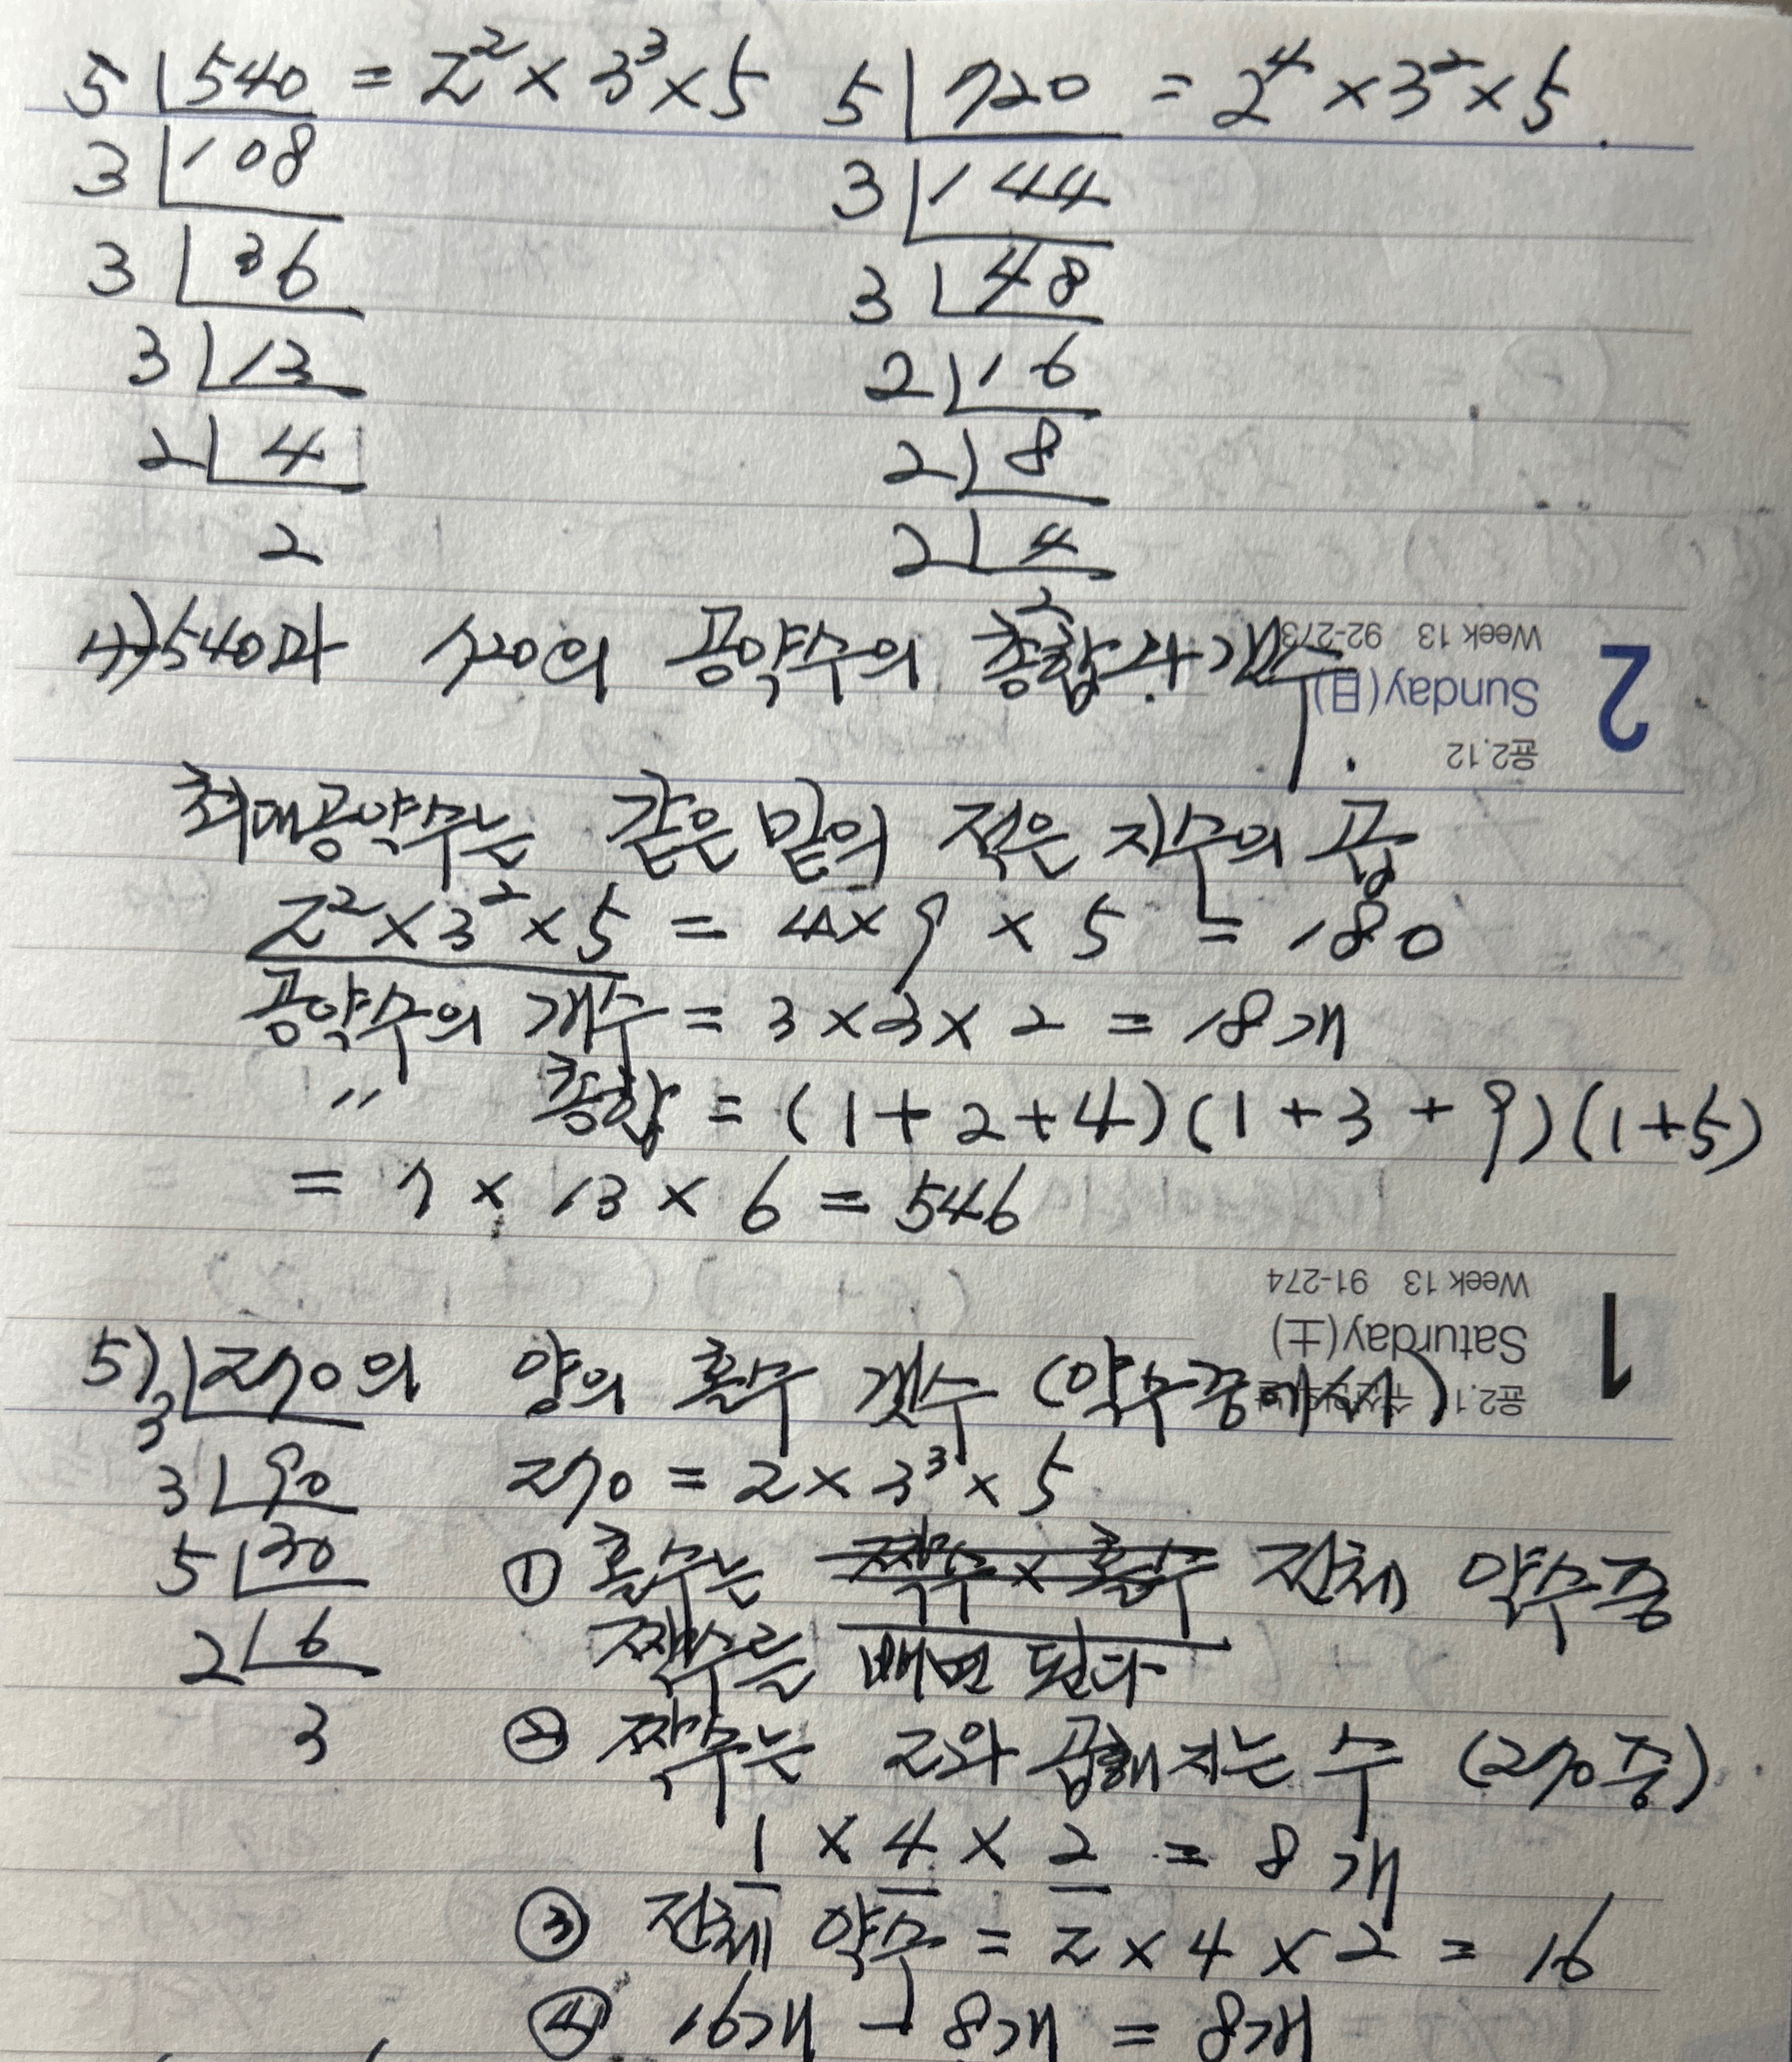 5 | 540 = 2² × 3³ × 5   5 | 720 = 2⁴ × 3² × 5.
3 | 108   3 | 144
3 | 36   3 | 48
3 | 13   2 | 16
2 | 4   2 | 8
2   2 | 4
2
4) 540과 720의 공약수의 총합과 개수.
Week 13 92-273
Sunday(日)
음2.12
2
최대공약수는 같은 밑의 적은 지수의 곱
2² × 3² × 5 = 4 × 9 × 5 = 180
공약수의 개수 = 3 × 3 × 2 = 18개
〃 총합 = (1+2+4)(1+3+9)(1+5)
= 7 × 13 × 6 = 546
Week 13 91-274
Saturday(土)
음2.11
1
5) 3 | 270의 양의 홀수 갯수 (약수중에서)
3 | 90   270 = 2 × 3³ × 5
5 | 30   ① 홀수는 짝수 × 홀수 전체 약수중
2 | 6   짝수를 빼면 된다
3   ② 짝수는 2와 곱해지는 수 (270중)
1 × 4 × 2 = 8개
③ 전체 약수 = 2 × 4 × 2 = 16
④ 16개 - 8개 = 8개